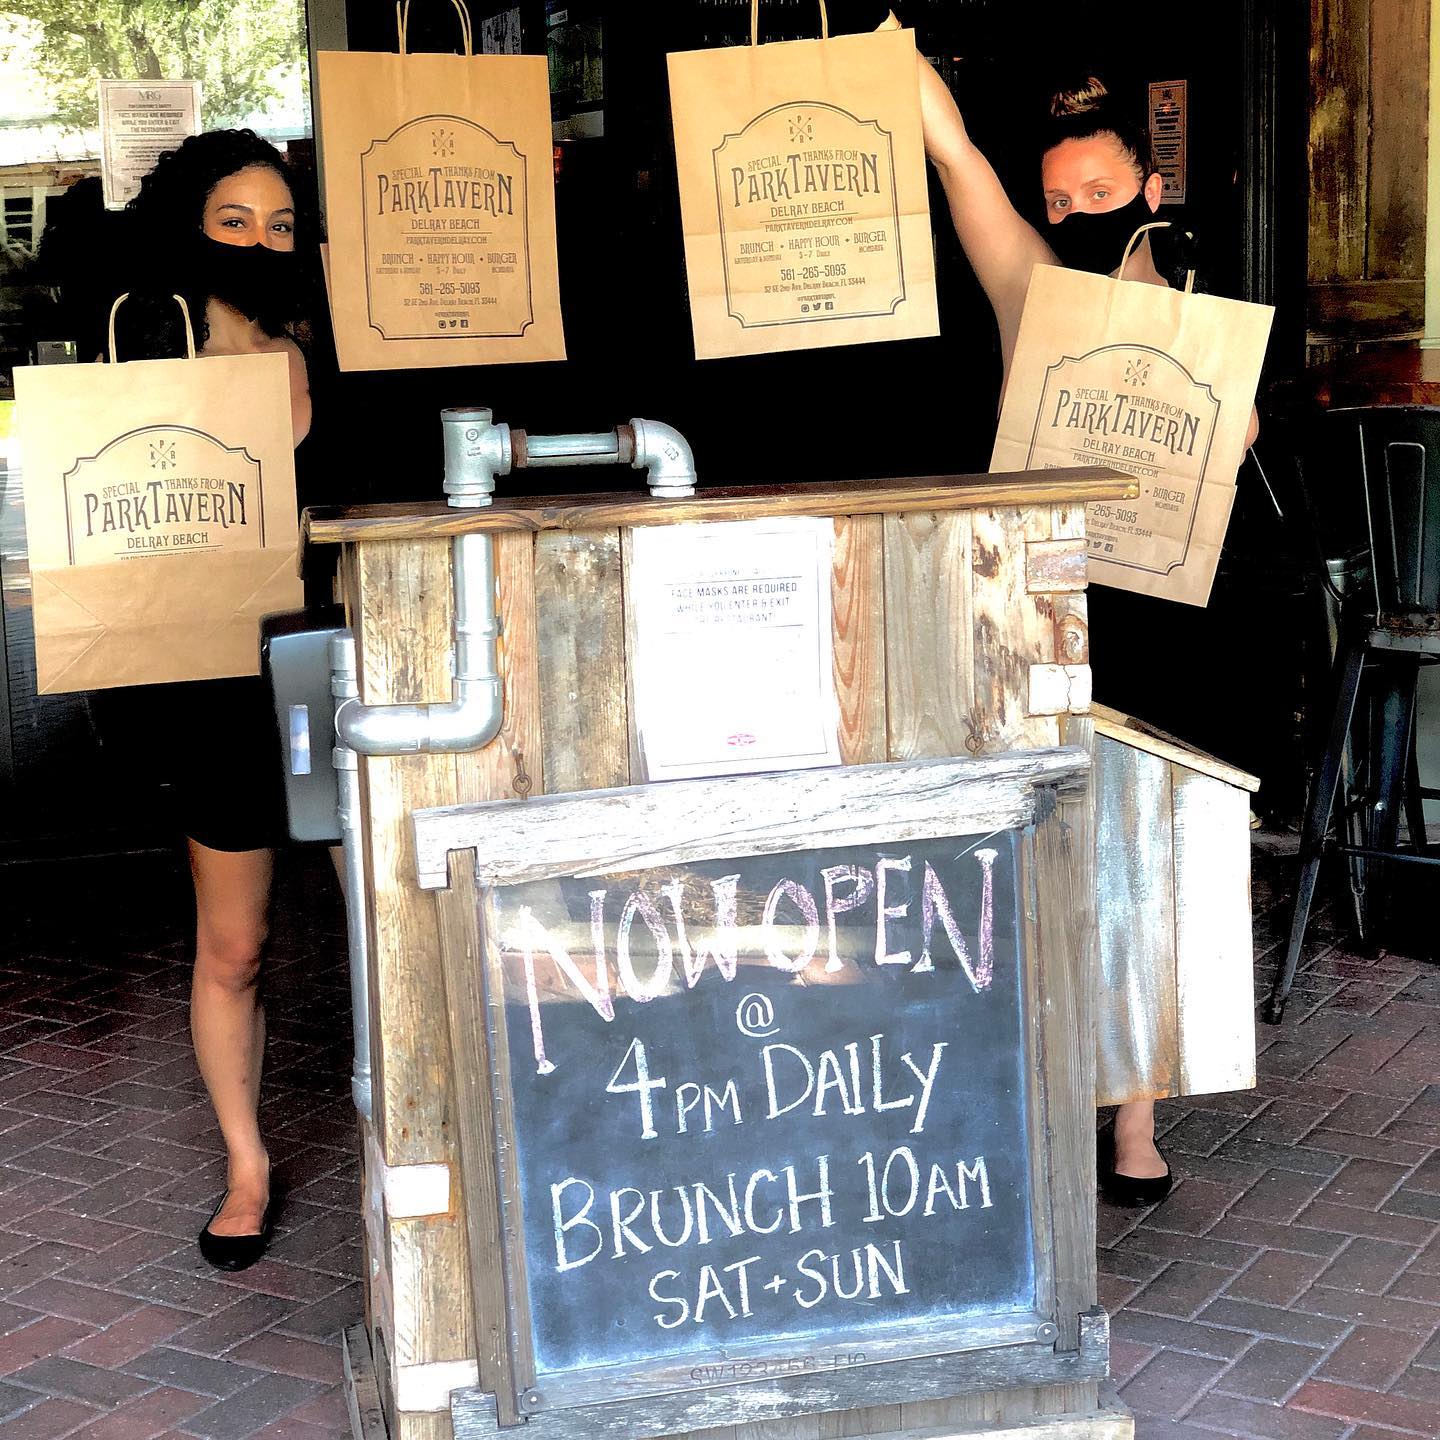 MRG
FACE MASKS ARE REQUIRED
WHILE YOU ENTER & EXIT
THE RESTAURANT!
P
K R
R
SPECIAL THANKS FROM
PARKTAVERN
DELRAY BEACH
PARKTAVERNDELRAY.COM
BRUNCH • HAPPY HOUR • BURGER
SATURDAY & SUNDAY 3-7 DAILY MONDAYS
561-265-5093
32 SE 2ND AVE DELRAY BEACH, FL 33444
@PARKTAVERNFL
P
K A
R
SPECIAL THANKS FROM
PARKTAVERN
DELRAY BEACH
PARKTAVERNDELRAY.COM
BRUNCH • HAPPY HOUR • BURGER
SATURDAY & SUNDAY 3-7 DAILY MONDAYS
561-265-5093
32 SE 2ND AVE DELRAY BEACH, FL 33444
@PARKTAVERNFL
P
K A
R
SPECIAL THANKS FROM
PARKTAVERN
DELRAY BEACH
P
K A
R
SPECIAL THANKS FROM
PARKTAVERN
DELRAY BEACH
PARKTAVERNDELRAY.COM
• BURGER
MONDAYS
-265-5093
DELRAY BEACH, FL 33444
FACE MASKS ARE REQUIRED
WHILE YOU ENTER & EXIT
THE RESTAURANT!
NOW OPEN
@
4PM DAILY
BRUNCH 10AM
SAT + SUN